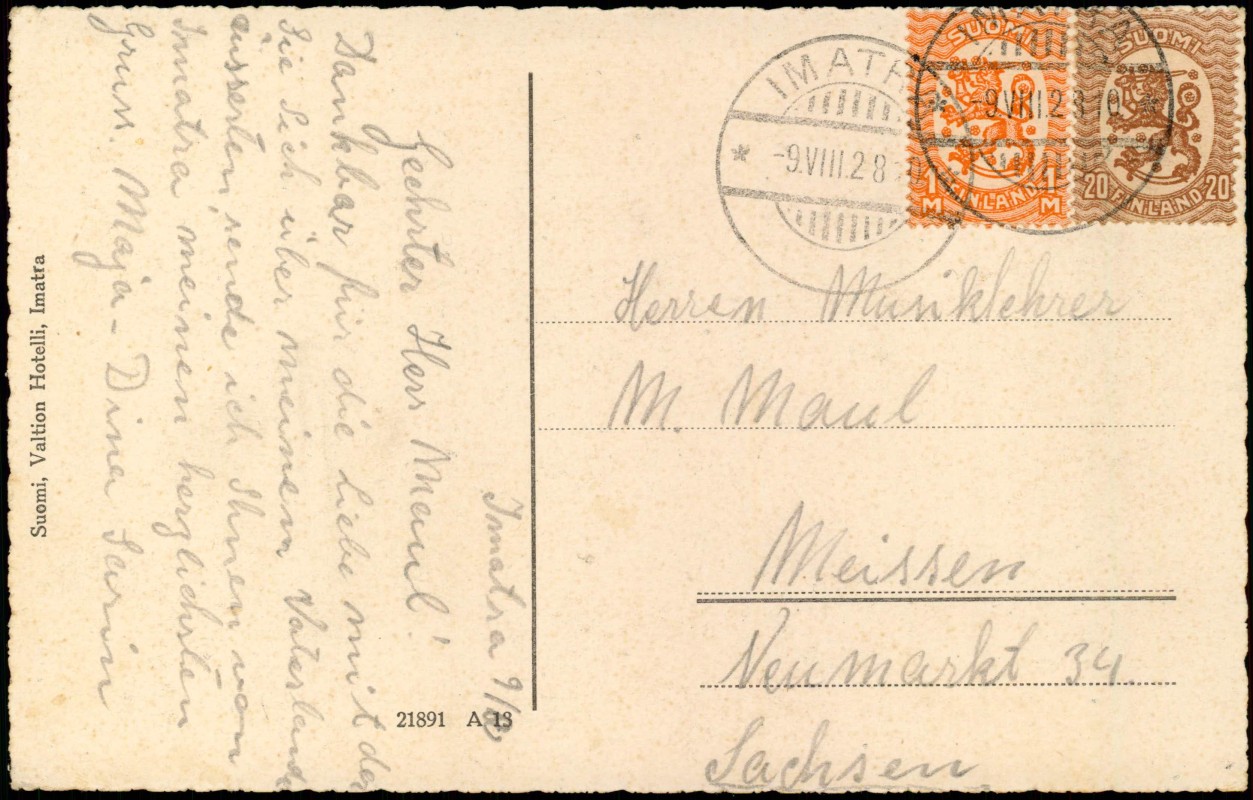 Suomi, Valtion Hotelli, Imatra
Imatra 9/
Geehrter Herr Maul!
Dankbar für die Liebe mit der
Sie Sich über meinem Vaterlande
äusserten, sende ich Ihnen vom
Imatra meinen herzlichsten
Gruss. Maja-Dina
21891 A 13
IMATRA
-9.VIII.28
SUOMI
1 M
FINLAND
1 M
SUOMI
20 FINLAND 20
-9.VIII.28
Herren Musiklehrer
M. Maul
Meissen
Neumarkt 34.
Sachsen